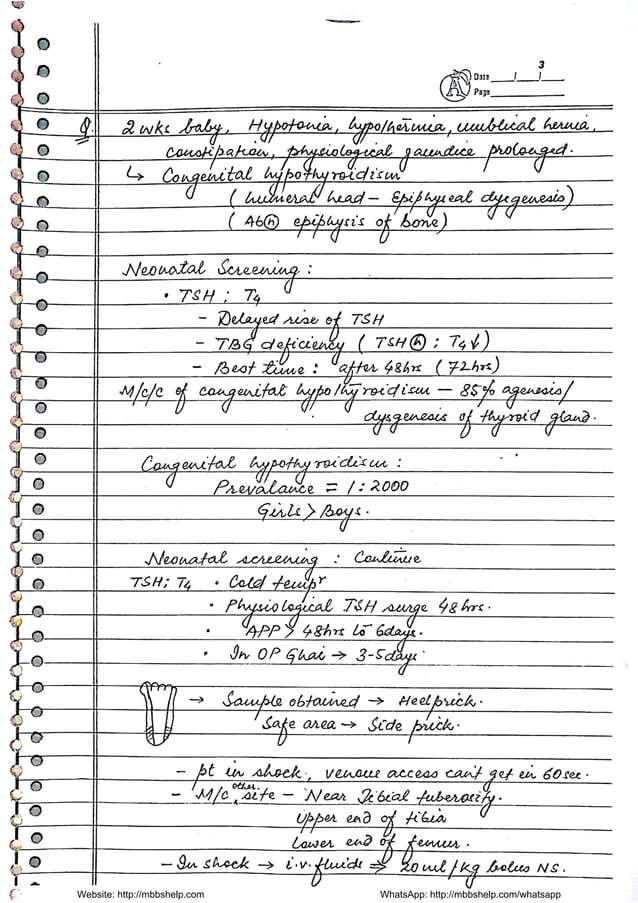 3
A Date
Page
Q. 2 wks baby, Hypotonia, hypothermia, umblical hernia,
constipation, physiological jaundice prolonged.
↳ Congenital hypothyroidism
(humeral head - Epiphyseal dysgenesis)
(Ab(n) epiphysis of bone)
Neonatal Screening :
• TSH ; T4
- Delayed rise of TSH
- TBG deficiency (TSH (n) ; T4↓)
- Best time : after 48hrs (72hrs)
M/c/c of congenital hypothyroidism - 85% agenesis/
dysgenesis of thyroid gland.
Congenital hypothyroidism :
Prevalance = 1 : 2000
Girls > Boys.
Neonatal screening : Continue
TSH; T4 • Cold tempr
• Physiological TSH surge 48hrs.
• APP > 48hrs to 6days.
• In OP Ghai → 3-5days
→ Sample obtained → Heelprick.
Safe area → Side prick.
- pt in shock, venous access can't get in 60sec.
- M/c other site - Near Tibial tuberosity.
Upper end of tibia
Lower end of femur.
- In shock → i.v. fluids ⇒ 20ml/kg bolus NS.
Website: http://mbbshelp.com WhatsApp: http://mbbshelp.com/whatsapp